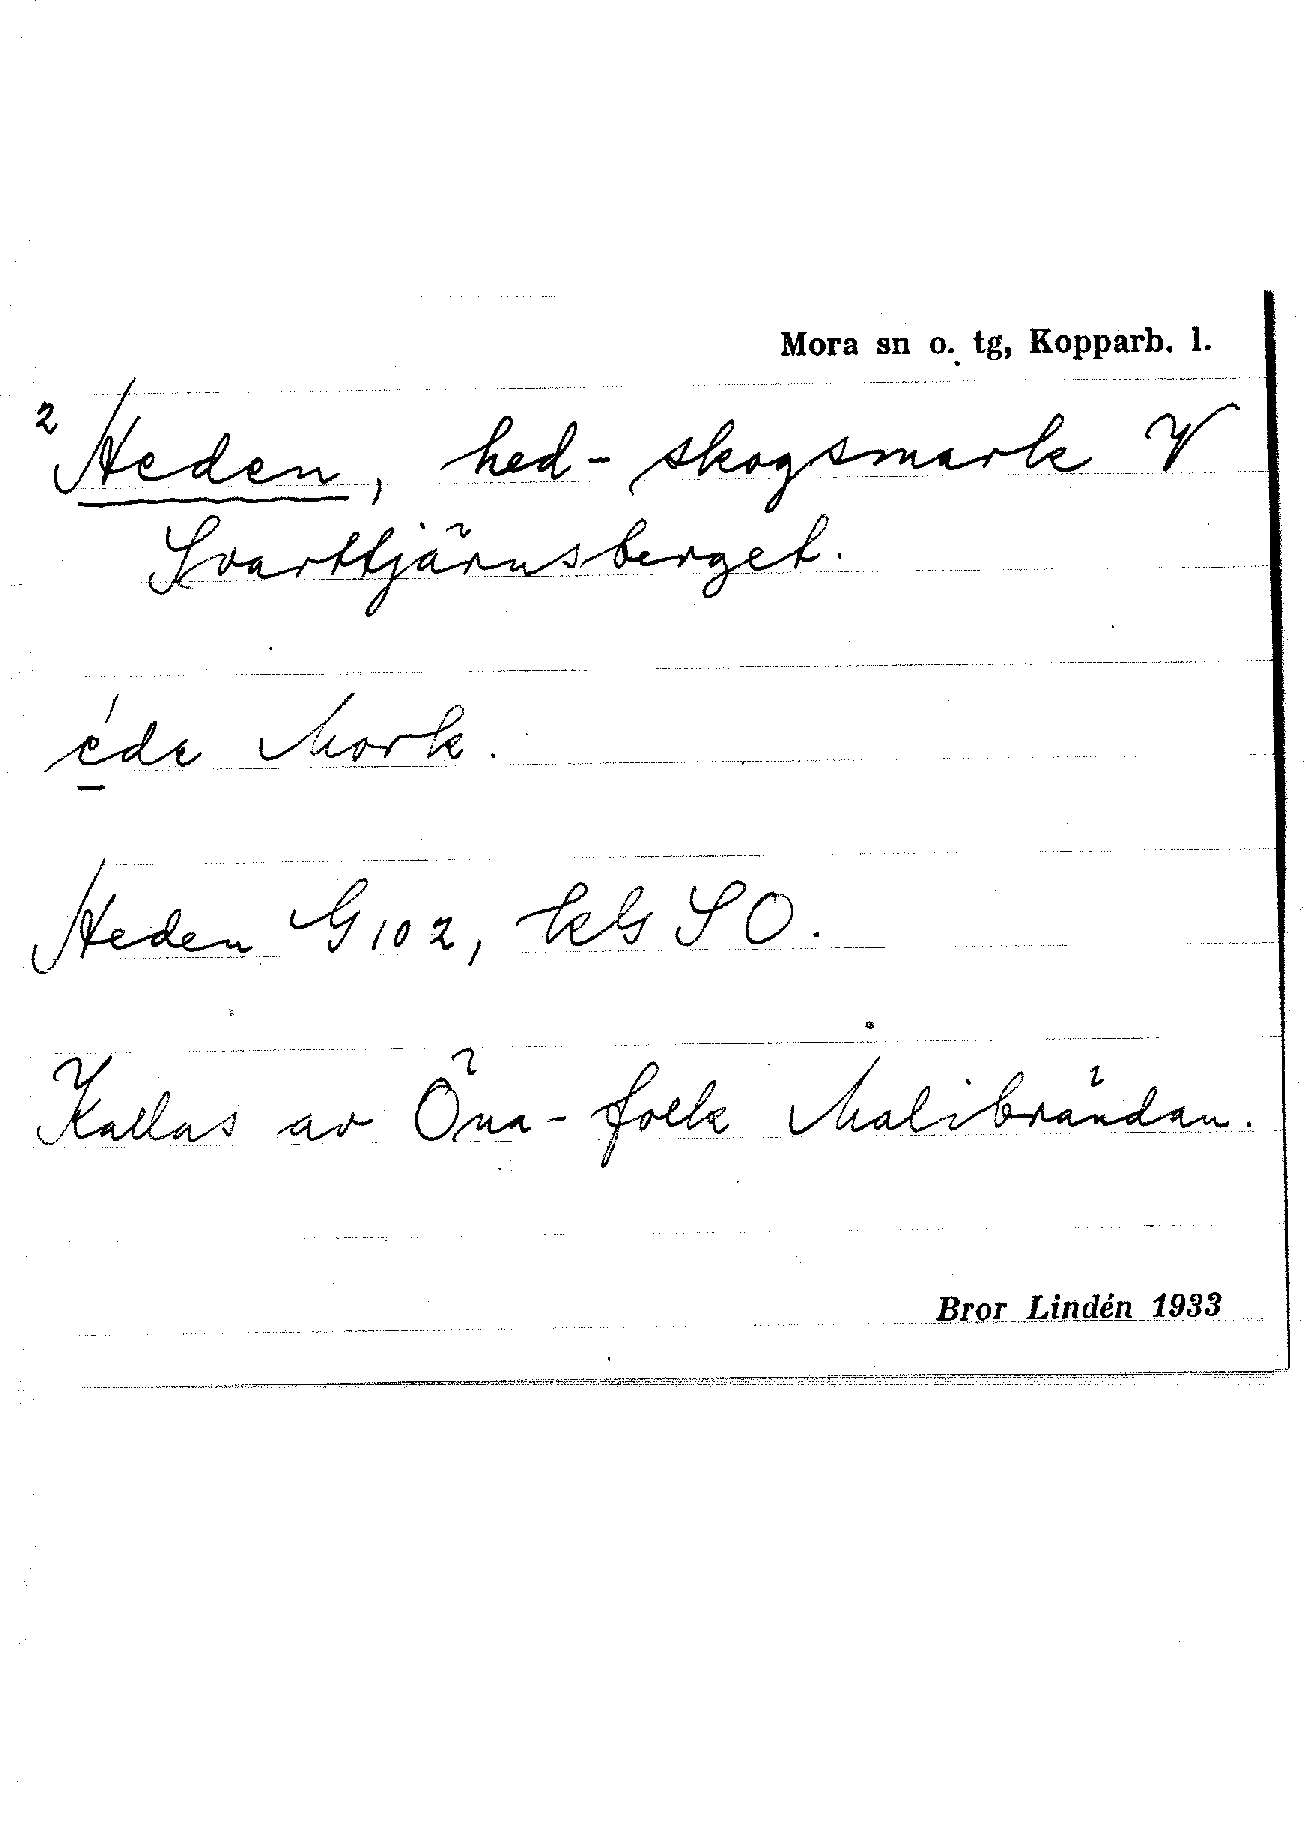 Mora sn o. tg, Kopparb. l.
2 Heden, hed-skogsmark V
Svarttjärnsberget.
éde Mork.
Heden G 102, kbl SO.
Kallas av Öna-folk Malibrändan.
Bror Lindén 1933